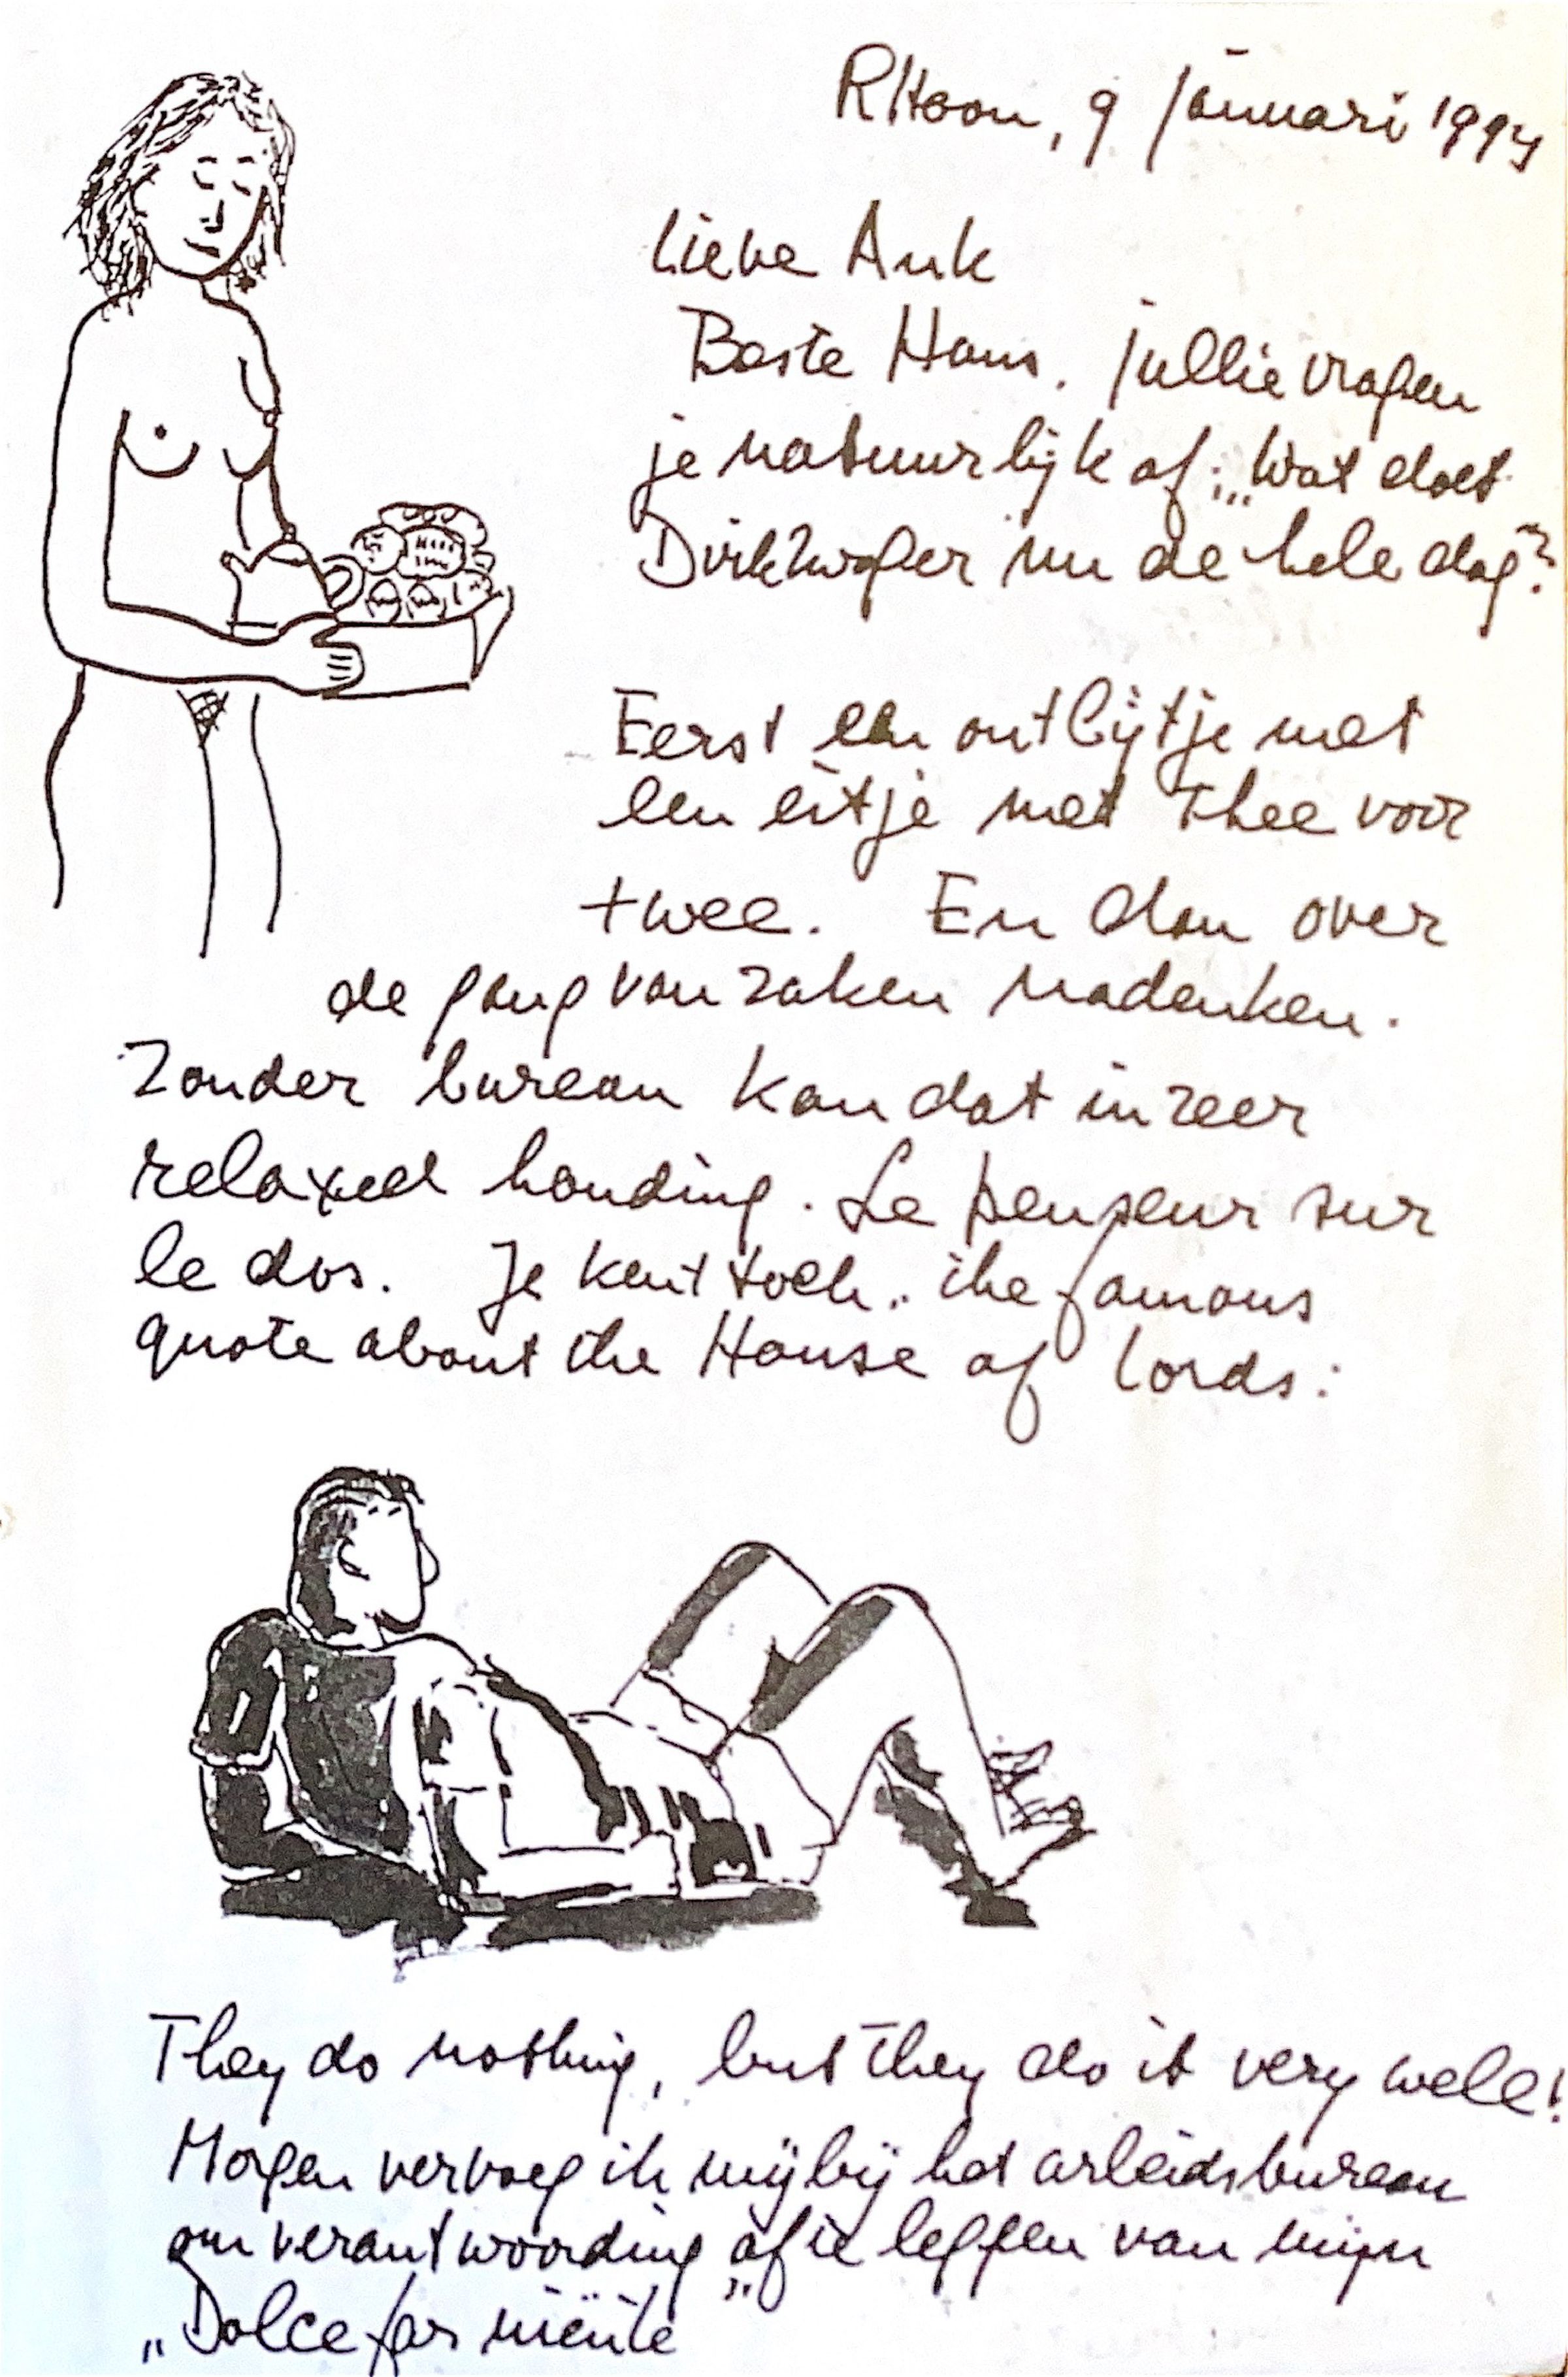 Rhoon, 9 januari 1994
Lieve Ank
Beste Hans. Jullie vragen
je natuurlijk af: „Wat doet
Dirkzwager nu de hele dag"?
Eerst een ontbijtje met
een eitje met thee voor
twee. En dan over
de gang van zaken nadenken.
Zonder bureau kan dat in zeer
relaxed houding. Le penseur sur
le dos. Je kent toch „the famous
quote about the House of Lords:
They do nothing, but they do it very well!
Morgen vervoeg ik mij bij het arbeidsbureau
om verantwoording af te leggen van mijn
„Dolce far niënte"